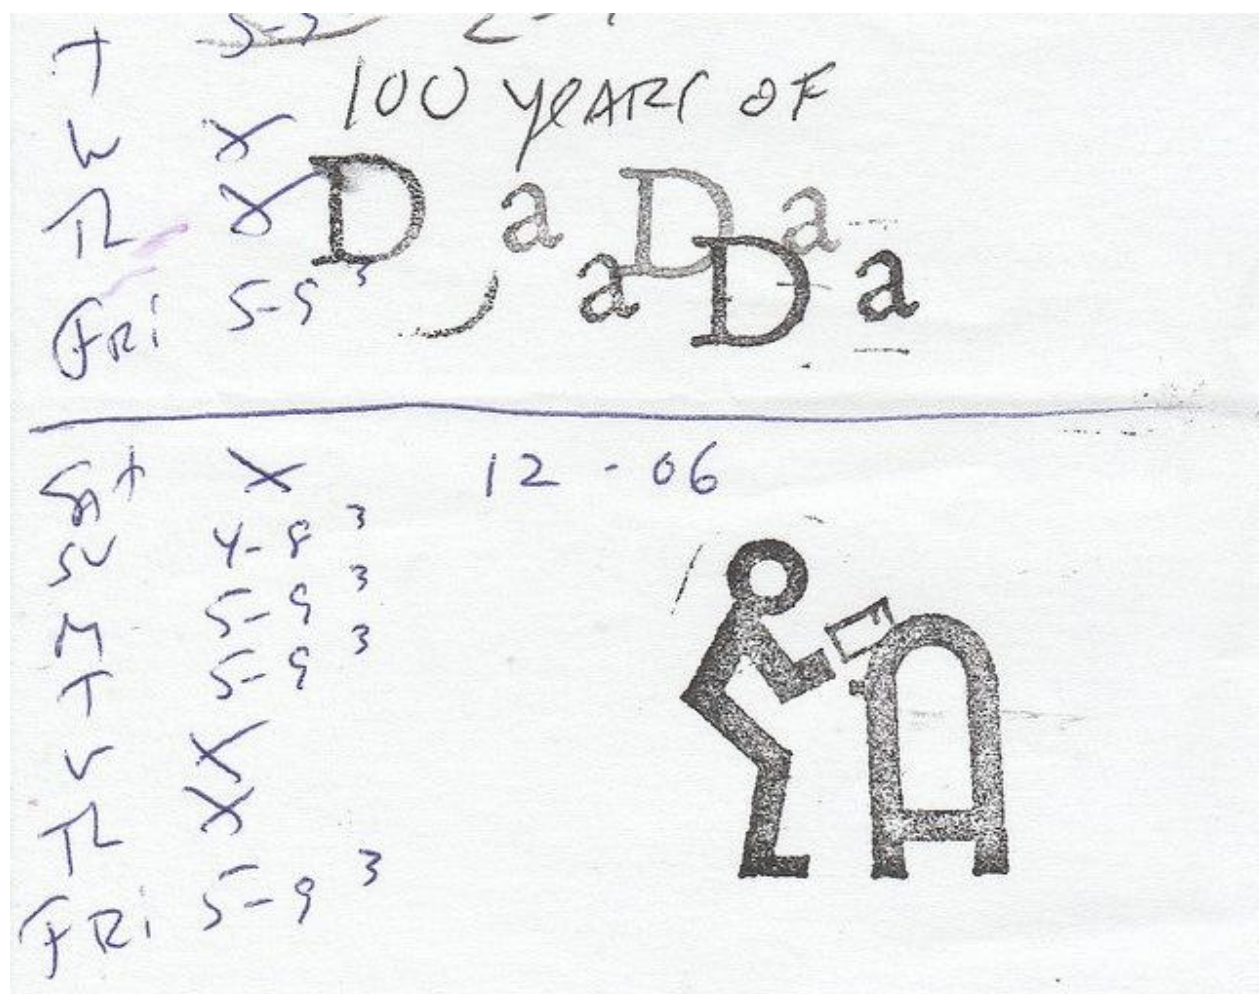 T 5-9
100 YEARS OF
W X
Th X
D a D a
a D a
FRi 5-9 3
SAt X 12 - 06
SU 4-8 3
M 5-9 3
T 5-9 3
W X
Th X
FRi 5-9 3